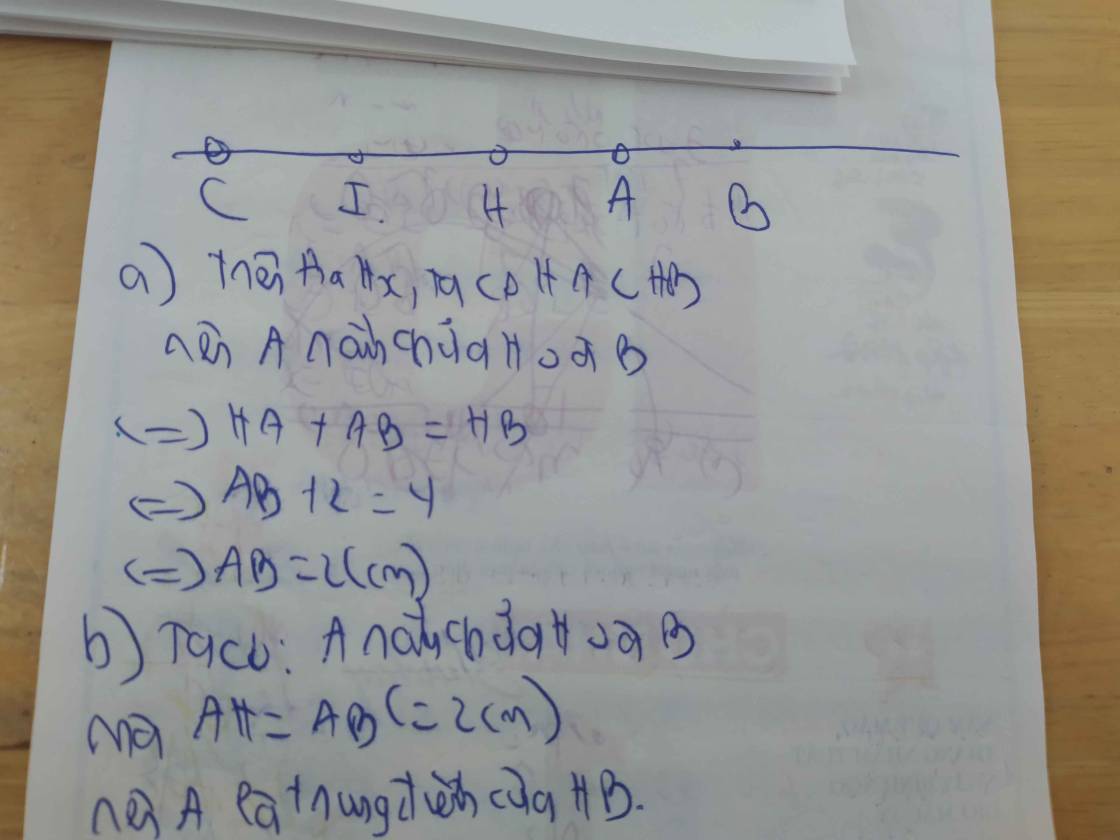 C I. H A B
a) Trên tia Hx, ta có HA < HB
nên A nằm giữa H và B
<=> HA + AB = HB
<=> AB + 2 = 4
<=> AB = 2(cm)
b) Ta có: A nằm giữa H và B
mà AH = AB (= 2cm)
nên A là trung điểm của HB.